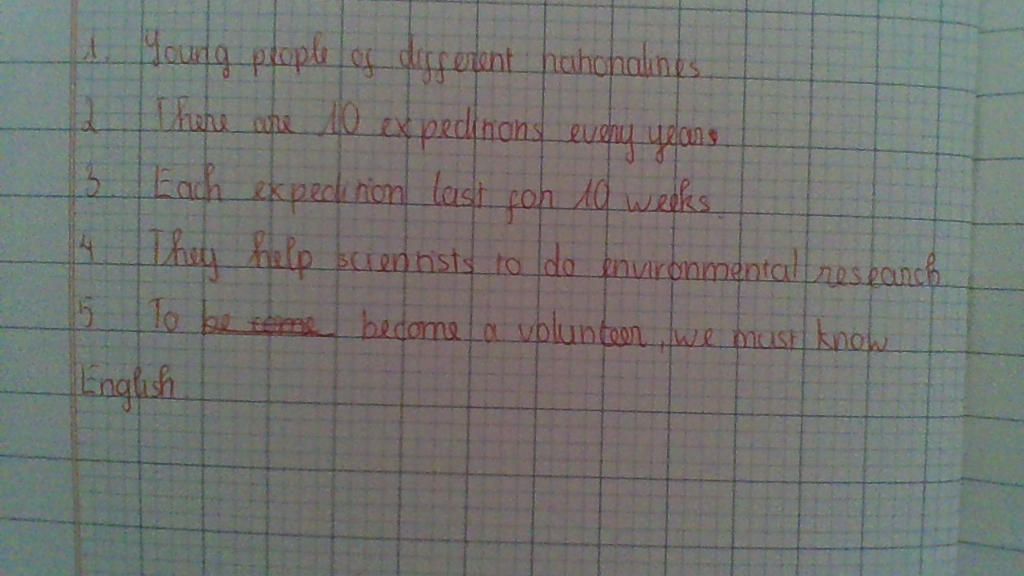 1. Young people of different nationalities
2 There are 10 expeditions every years
3 Each expedition last for 10 weeks.
4 They help scientists to do environmental research
5 To be come become a volunteer, we must know
English